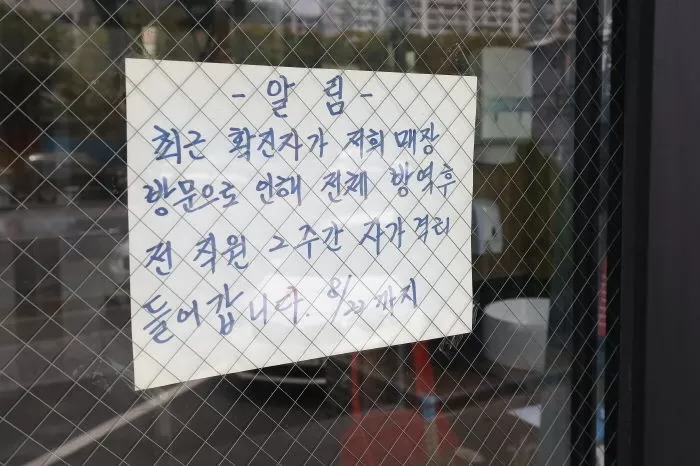 - 알 림 -
최근 확진자가 저희 매장
방문으로 인해 전체 방역후
전 직원 2주간 자가격리
들어갑니다. 8/22까지